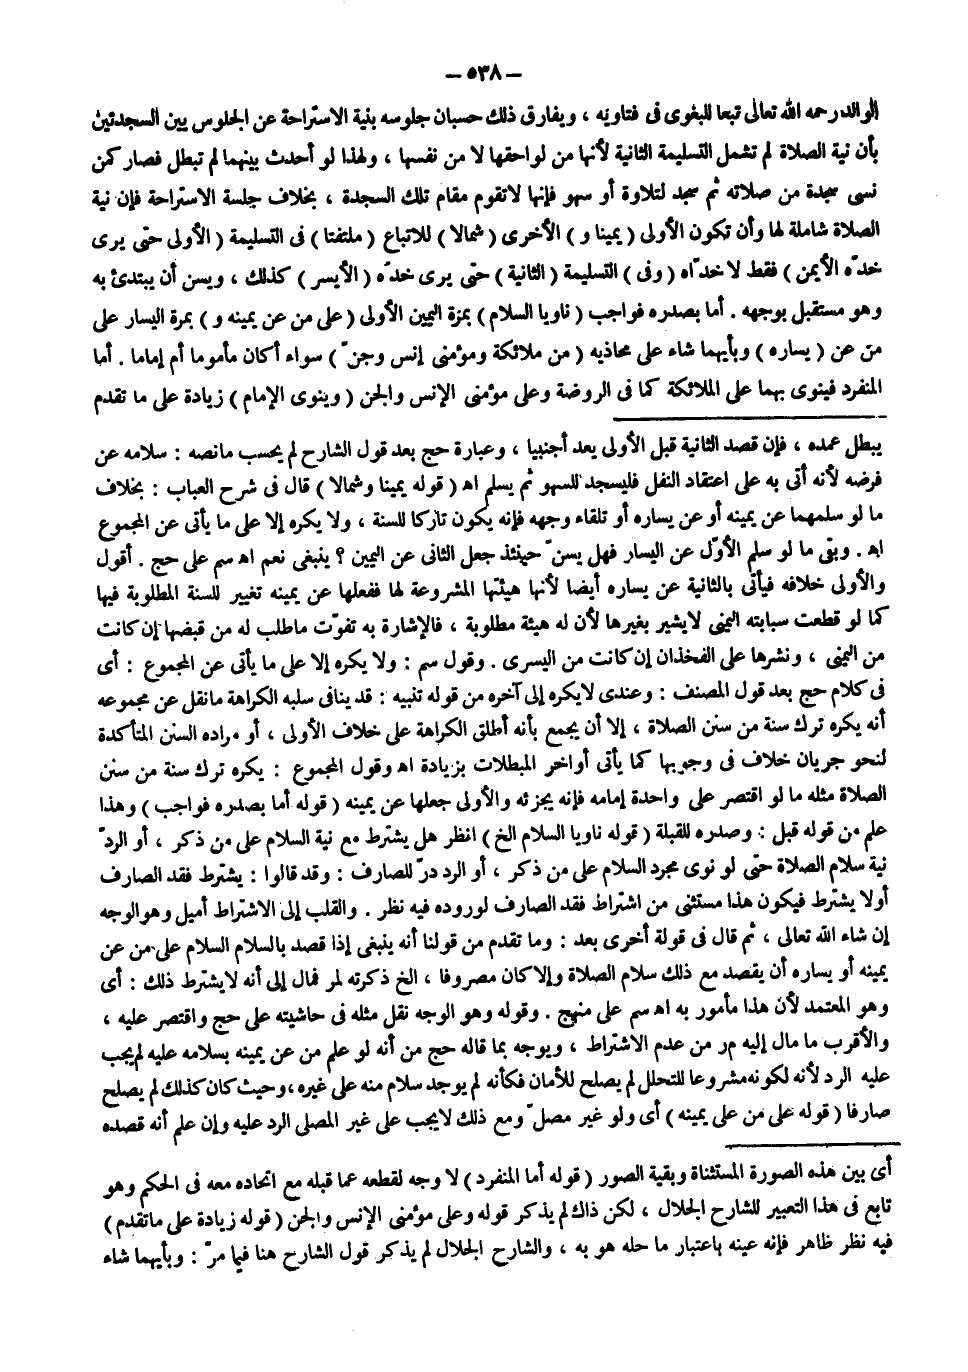 — ٥٣٨ —
الوالد رحمه الله تعالى تبعا للبغوى فى فتاويه ، ويفارق ذلك حسبان جلوسه بنية الاستراحة عن الجلوس بين السجدتين
بأن نية الصلاة لم تشمل التسليمة الثانية لأنها من لواحقها لا من نفسها ، ولهذا لو أحدث بينهما لم تبطل فصار كمن
نسى سجدة من صلاته ثم سجد لتلاوة أو سهو فإنها لاتقوم مقام تلك السجدة ، بخلاف جلسة الاستراحة فإن نية
الصلاة شاملة لها وأن تكون الأولى ( يمينا و ) الأخرى ( شمالا ) للاتباع ( ملتفتا ) فى التسليمة ( الأولى حتى يرى
خدّه الأيمن ) فقط لا خدّاه ( وفى ) التسليمة ( الثانية ) حتى يرى خدّه ( الأيسر ) كذلك ، ويسن أن يبتدئ به
وهو مستقبل بوجهه . أما بصدره فواجب ( ناويا السلام ) بمرة اليمين الأولى ( على من عن يمينه و ) بمرة اليسار على
من عن ( يساره ) وبأيهما شاء على محاذيه ( من ملائكة ومؤمنى إنس وجنّ ) سواء أكان مأموما أم إماما . أما
المنفرد فينوى بهما على الملائكة كما فى الروضة وعلى مؤمنى الإنس والجن ( وينوى الإمام ) زيادة على ما تقدم
يبطل عمده ، فإن قصد الثانية قبل الأولى يعد أجنبيا ، وعبارة حج بعد قول الشارح لم يحسب مانصه : سلامه عن
فرضه لأنه أتى به على اعتقاد النفل فليسجد للسهو ثم يسلم اه ( قوله يمينا وشمالا ) قال فى شرح العباب : بخلاف
ما لو سلمهما عن يمينه أو عن يساره أو تلقاء وجهه فإنه يكون تاركا للسنة ، ولا يكره إلا على ما يأتى عن المجموع
اه . وبقى ما لو سلم الأوّل عن اليسار فهل يسنّ حينئذ جعل الثانى عن اليمين ؟ ينبغى نعم اه سم على حج . أقول
والأولى خلافه فيأتى بالثانية عن يساره أيضا لأنها هيئتها المشروعة لها ففعلها عن يمينه تغيير للسنة المطلوبة فيها
كما لو قطعت سبابته اليمنى لايشير بغيرها لأن له هيئة مطلوبة ، فالإشارة به تفوّت ماطلب له من قبضها إن كانت
من اليمنى ، ونشرها على الفخذان إن كانت من اليسرى . وقول سم : ولا يكره إلا على ما يأتى عن المجموع : أى
فى كلام حج بعد قول المصنف : وعندى لايكره إلى آخره من قوله تنبيه : قد ينافى سلبه الكراهة مانقل عن مجموعه
أنه يكره ترك سنة من سنن الصلاة ، إلا أن يجمع بأنه أطلق الكراهة على خلاف الأولى ، أو مراده السنن المتأكدة
لنحو جريان خلاف فى وجوبها كما يأتى أواخر المبطلات بزيادة اه وقول المجموع : يكره ترك سنة من سنن
الصلاة مثله ما لو اقتصر على واحدة إمامه فإنه يجزئه والأولى جعلها عن يمينه ( قوله أما بصدره فواجب ) وهذا
علم من قوله قبل : وصدره للقبلة ( قوله ناويا السلام الخ ) انظر هل يشترط مع نية السلام على من ذكر ، أو الردّ
نية سلام الصلاة حتى لو نوى مجرد السلام على من ذكر ، أو الرد درّ للصارف : وقد قالوا : يشترط فقد الصارف
أولا يشترط فيكون هذا مستثنى من اشتراط فقد الصارف لوروده فيه نظر . والقلب إلى الاشتراط أميل وهو الوجه
إن شاء الله تعالى ، ثم قال فى قولة أخرى بعد : وما تقدم من قولنا أنه ينبغى إذا قصد بالسلام السلام على من عن
يمينه أو يساره أن يقصد مع ذلك سلام الصلاة وإلا كان مصروفا ، الخ ذكرته لمر فمال إلى أنه لايشترط ذلك : أى
وهو المعتمد لأن هذا مأمور به اه سم على منهج . وقوله وهو الوجه نقل مثله فى حاشيته على حج واقتصر عليه ،
والأقرب ما مال إليه مر من عدم الاشتراط ، ويوجه بما قاله حج من أنه لو علم من عن يمينه بسلامه عليه لم يجب
عليه الرد لأنه لكونه مشروعا للتحلل لم يصلح للأمان فكأنه لم يوجد سلام منه على غيره ، وحيث كان كذلك لم يصلح
صارفا ( قوله على من على يمينه ) أى ولو غير مصلّ ومع ذلك لايجب على غير المصلى الرد عليه وإن علم أنه قصده
أى بين هذه الصورة المستثناة وبقية الصور ( قوله أما المنفرد ) لا وجه لقطعه عما قبله مع اتحاده معه فى الحكم وهو
تابع فى هذا التعبير للشارح الجلال ، لكن ذاك لم يذكر قوله وعلى مؤمنى الإنس والجن ( قوله زيادة على ماتقدم )
فيه نظر ظاهر فإنه عينه باعتبار ما حله هو به ، والشارح الجلال لم يذكر قول الشارح هنا فيما مرّ : وبأيهما شاء